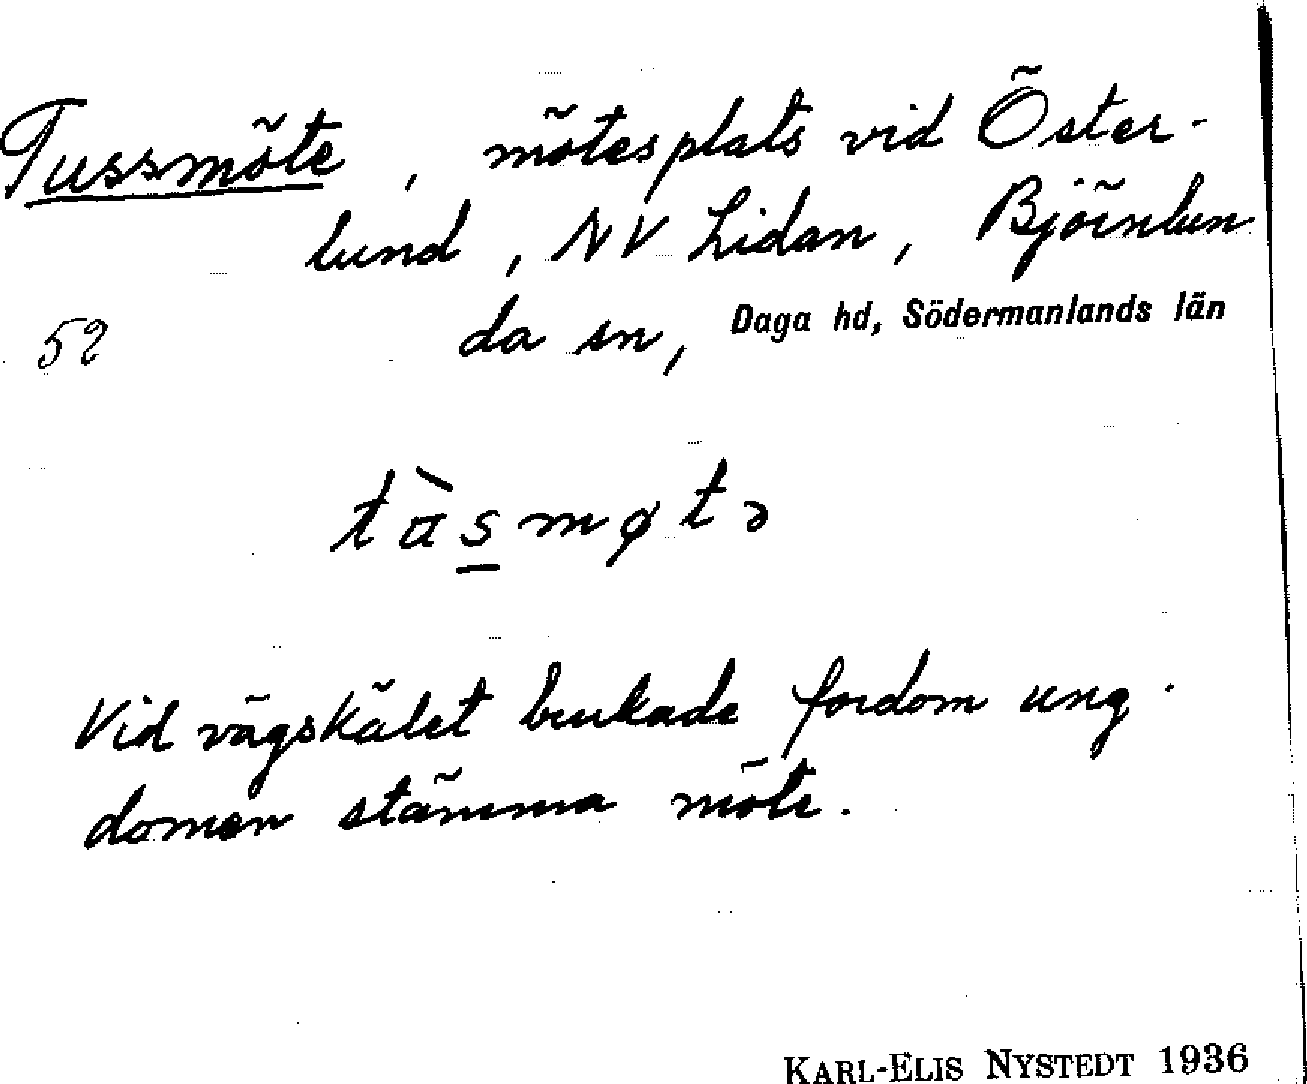 Tussmöte, mötesplats vid Öster-
lund, NV Lidan, Björnlun
da sn, Daga hd, Södermanlands län
52
Vid vägskälet brukade fordom ung-
domen stämma möte.
KARL-ELIS NYSTEDT 1936